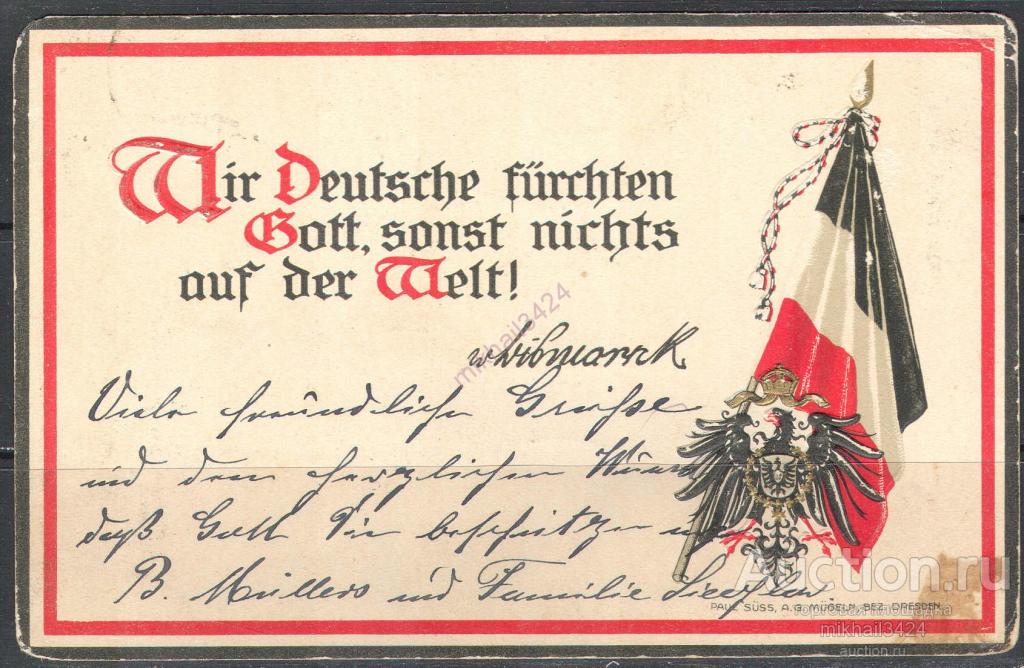 Wir Deutsche fürchten
Gott, sonst nichts
auf der Welt!
v Bismarck
Viele freundliche Grüße
und den herzlichen
daß Gott Sie beschützen
B. Müllers und Familie
PAUL SÜSS, A.G. MÜGELN, BEZ. DRESDEN
mikhail3424
Auction.ru
торговая площадка
mikhail3424
auction.ru